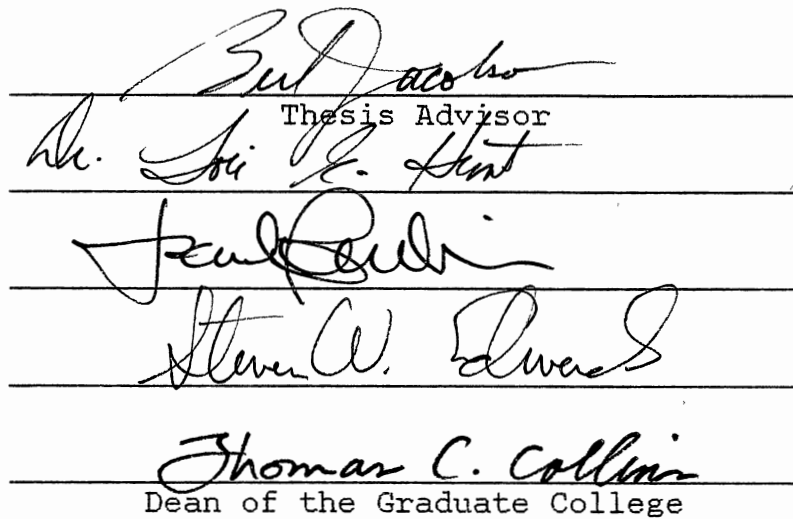 Bert Jacobson
Thesis Advisor
Dr. Lori E. Hunt
Steven W. Edwards
Thomas C. Collins
Dean of the Graduate College